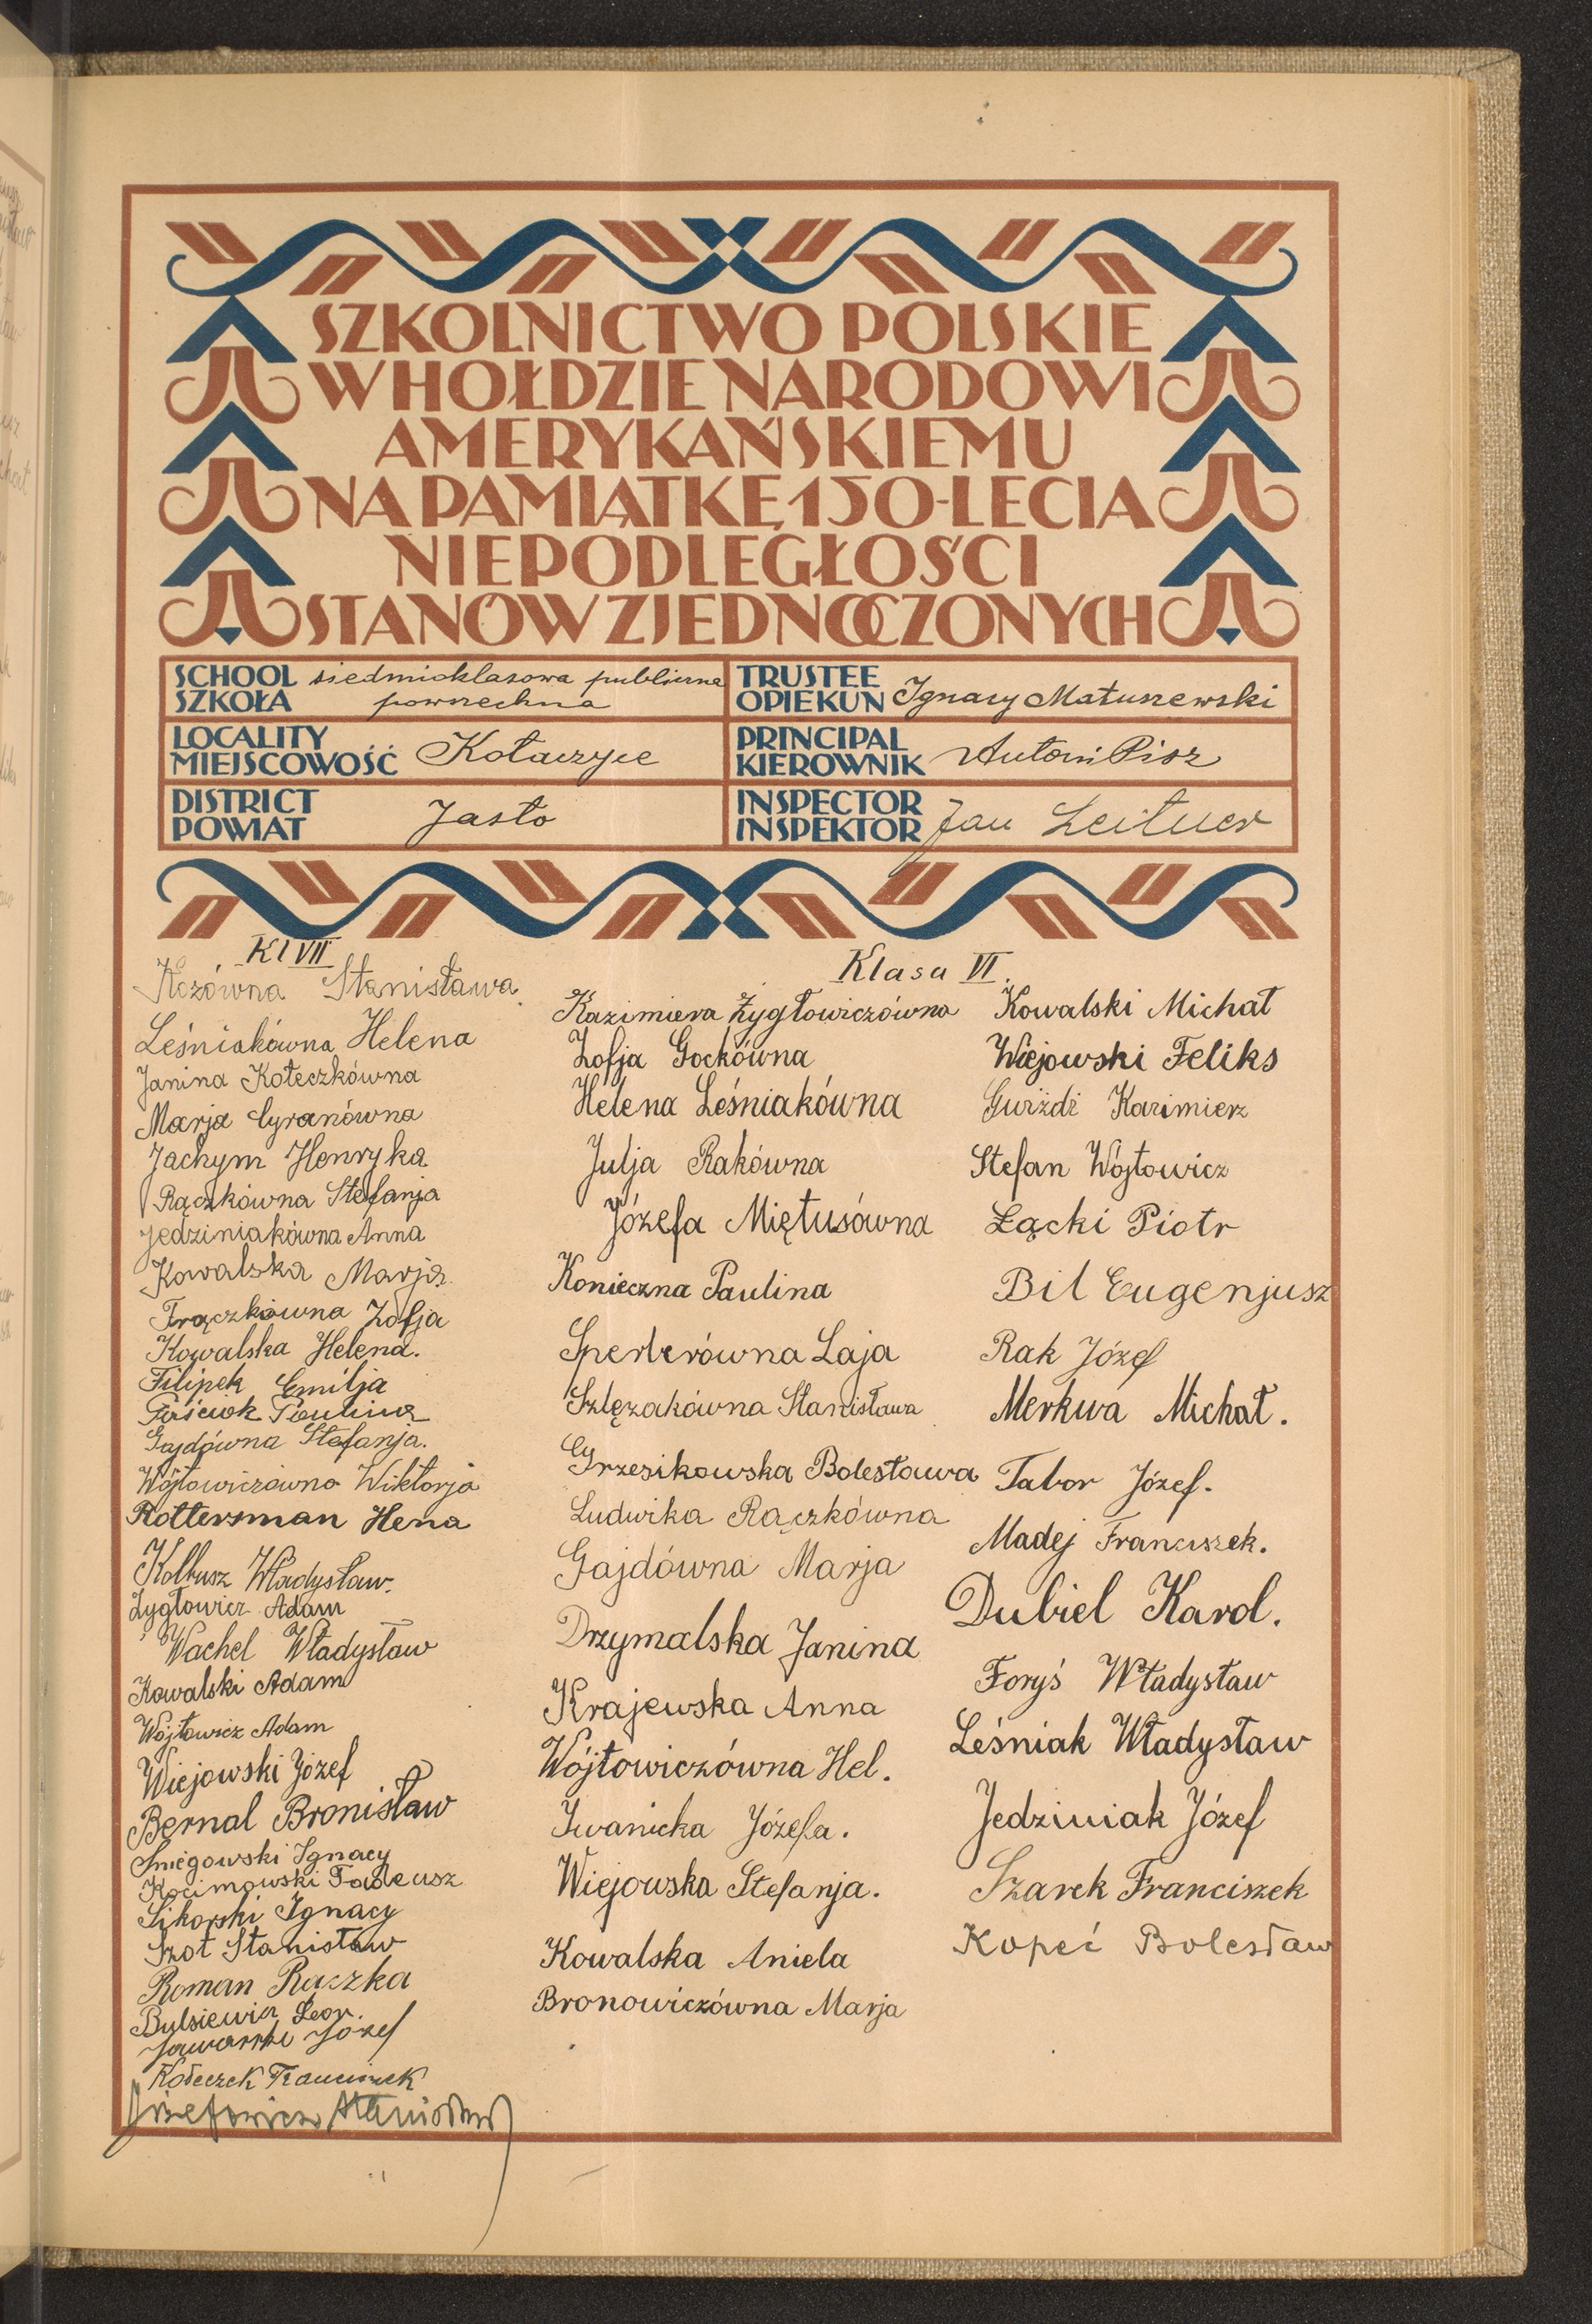 SZKOLNICTWO POLSKIE
W HOŁDZIE NARODOWI
AMERYKAŃSKIEMU
NA PAMIĄTKĘ 150-LECIA
NIEPODLEGŁOŚCI
STANÓW ZJEDNOCZONYCH
SCHOOL
SZKOŁA
siedmioklasowa publiczna
powszechna
TRUSTEE
OPIEKUN
Ignacy Matuszewski
LOCALITY
MIEJSCOWOŚĆ
Kołaczyce
PRINCIPAL
KIEROWNIK
Antoni Pisz
DISTRICT
POWIAT
Jasło
INSPECTOR
INSPEKTOR
Jan Leitner
Kl VII
Stanisława
Leśniakówna Helena
Janina Kołeczkówna
Marja Cyranówna
Jachym Henryka
Rączkówna Stefanja
Jedziniakówna Anna
Kowalska Marja
Frączkówna Zofja
Kowalska Helena.
Filipek Emilja
Gajdówna Stefanja.
Wójtowiczówna Wiktorja
Rottersman Hena
Kolbusz Władysław.
Zygłowicz Adam
Wachel Władysław
Kowalski Adam
Wójtowicz Adam
Wiejowski Józef
Bernal Bronisław
Śniegowski Ignacy
Tadeusz
Sikorski Ignacy
Szot Stanisław
Roman Raczka
Leon.
Józef
Kołeczek Franciszek
Józefowicz Stanisław
Klasa VI.
Kazimiera Zygłowiczówna
Zofja Gockówna
Helena Leśniakówna
Julja Rakówna
Józefa Miętusówna
Konieczna Paulina
Sperberówna Laja
Szlęzakówna Stanisława
Grzesikowska Bolesława
Ludwika Rączkówna
Gajdówna Marja
Drzymalska Janina
Krajewska Anna
Wójtowiczówna Hel.
Iwanicka Józefa.
Wiejowska Stefanja.
Kowalska Aniela
Bronowiczówna Marja
Kowalski Michał
Wiejowski Feliks
Guiżdż Kazimierz
Stefan Wójtowicz
Łącki Piotr
Bil Eugenjusz
Rak Józef
Merkwa Michał.
Tabor Józef.
Madej Franciszek.
Dubiel Karol.
Foryś Władysław
Leśniak Władysław
Jedziniak Józef
Szarek Franciszek
Kopeć Bolesław